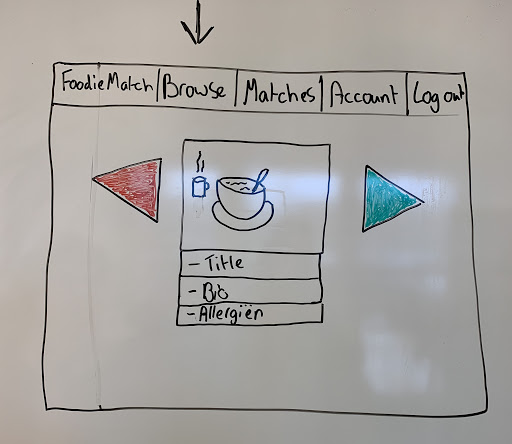 FoodieMatch Browse Matches Account Log out
- Title
- Bio
- Allergiën